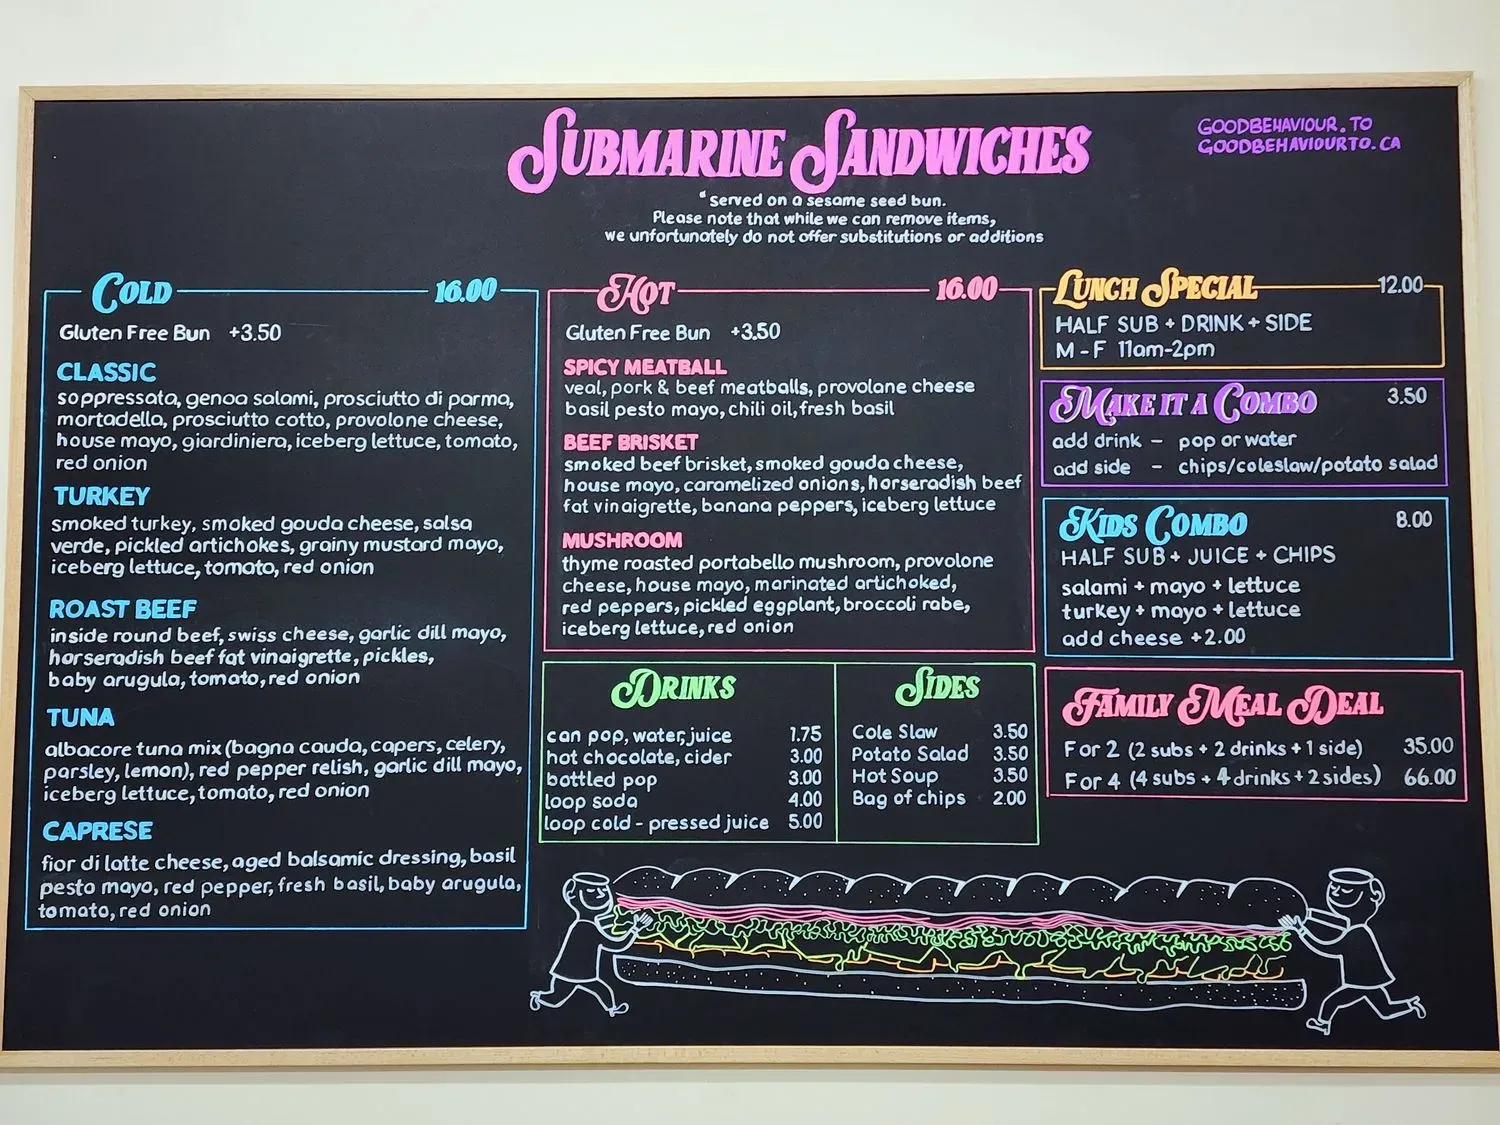 SUBMARINE SANDWICHES
GOODBEHAVIOUR.TO
GOODBEHAVIOURTO.CA
* Served on a sesame seed bun.
Please note that while we can remove items,
we unfortunately do not offer substitutions or additions
COLD 16.00
Gluten Free Bun +3.50
CLASSIC
soppressata, genoa salami, prosciutto di parma,
mortadella, prosciutto cotto, provolone cheese,
house mayo, giardiniera, iceberg lettuce, tomato,
red onion
TURKEY
smoked turkey, smoked gouda cheese, salsa
verde, pickled artichokes, grainy mustard mayo,
iceberg lettuce, tomato, red onion
ROAST BEEF
inside round beef, swiss cheese, garlic dill mayo,
horseradish beef fat vinaigrette, pickles,
baby arugula, tomato, red onion
TUNA
albacore tuna mix (bagna cauda, capers, celery,
parsley, lemon), red pepper relish, garlic dill mayo,
iceberg lettuce, tomato, red onion
CAPRESE
fior di latte cheese, aged balsamic dressing, basil
pesto mayo, red pepper, fresh basil, baby arugula,
tomato, red onion
HOT 16.00
Gluten Free Bun +3.50
SPICY MEATBALL
veal, pork & beef meatballs, provolane cheese
basil pesto mayo, chili oil, fresh basil
BEEF BRISKET
smoked beef brisket, smoked gouda cheese,
house mayo, caramelized onions, horseradish beef
fat vinaigrette, banana peppers, iceberg lettuce
MUSHROOM
thyme roasted portabello mushroom, provolone
cheese, house mayo, marinated artichoked,
red peppers, pickled eggplant, broccoli rabe,
iceberg lettuce, red onion
DRINKS
can pop, water, juice 1.75
hot chocolate, cider 3.00
bottled pop 3.00
loop soda 4.00
loop cold - pressed juice 5.00
SIDES
Cole Slaw 3.50
Potato Salad 3.50
Hot Soup 3.50
Bag of chips 2.00
LUNCH SPECIAL 12.00
HALF SUB + DRINK + SIDE
M - F 11am-2pm
MAKE IT A COMBO 3.50
add drink - pop or water
add side - chips/coleslaw/potato salad
KIDS COMBO 8.00
HALF SUB + JUICE + CHIPS
salami + mayo + lettuce
turkey + mayo + lettuce
add cheese +2.00
FAMILY MEAL DEAL
For 2 (2 subs + 2 drinks + 1 side) 35.00
For 4 (4 subs + 4 drinks + 2 sides) 66.00